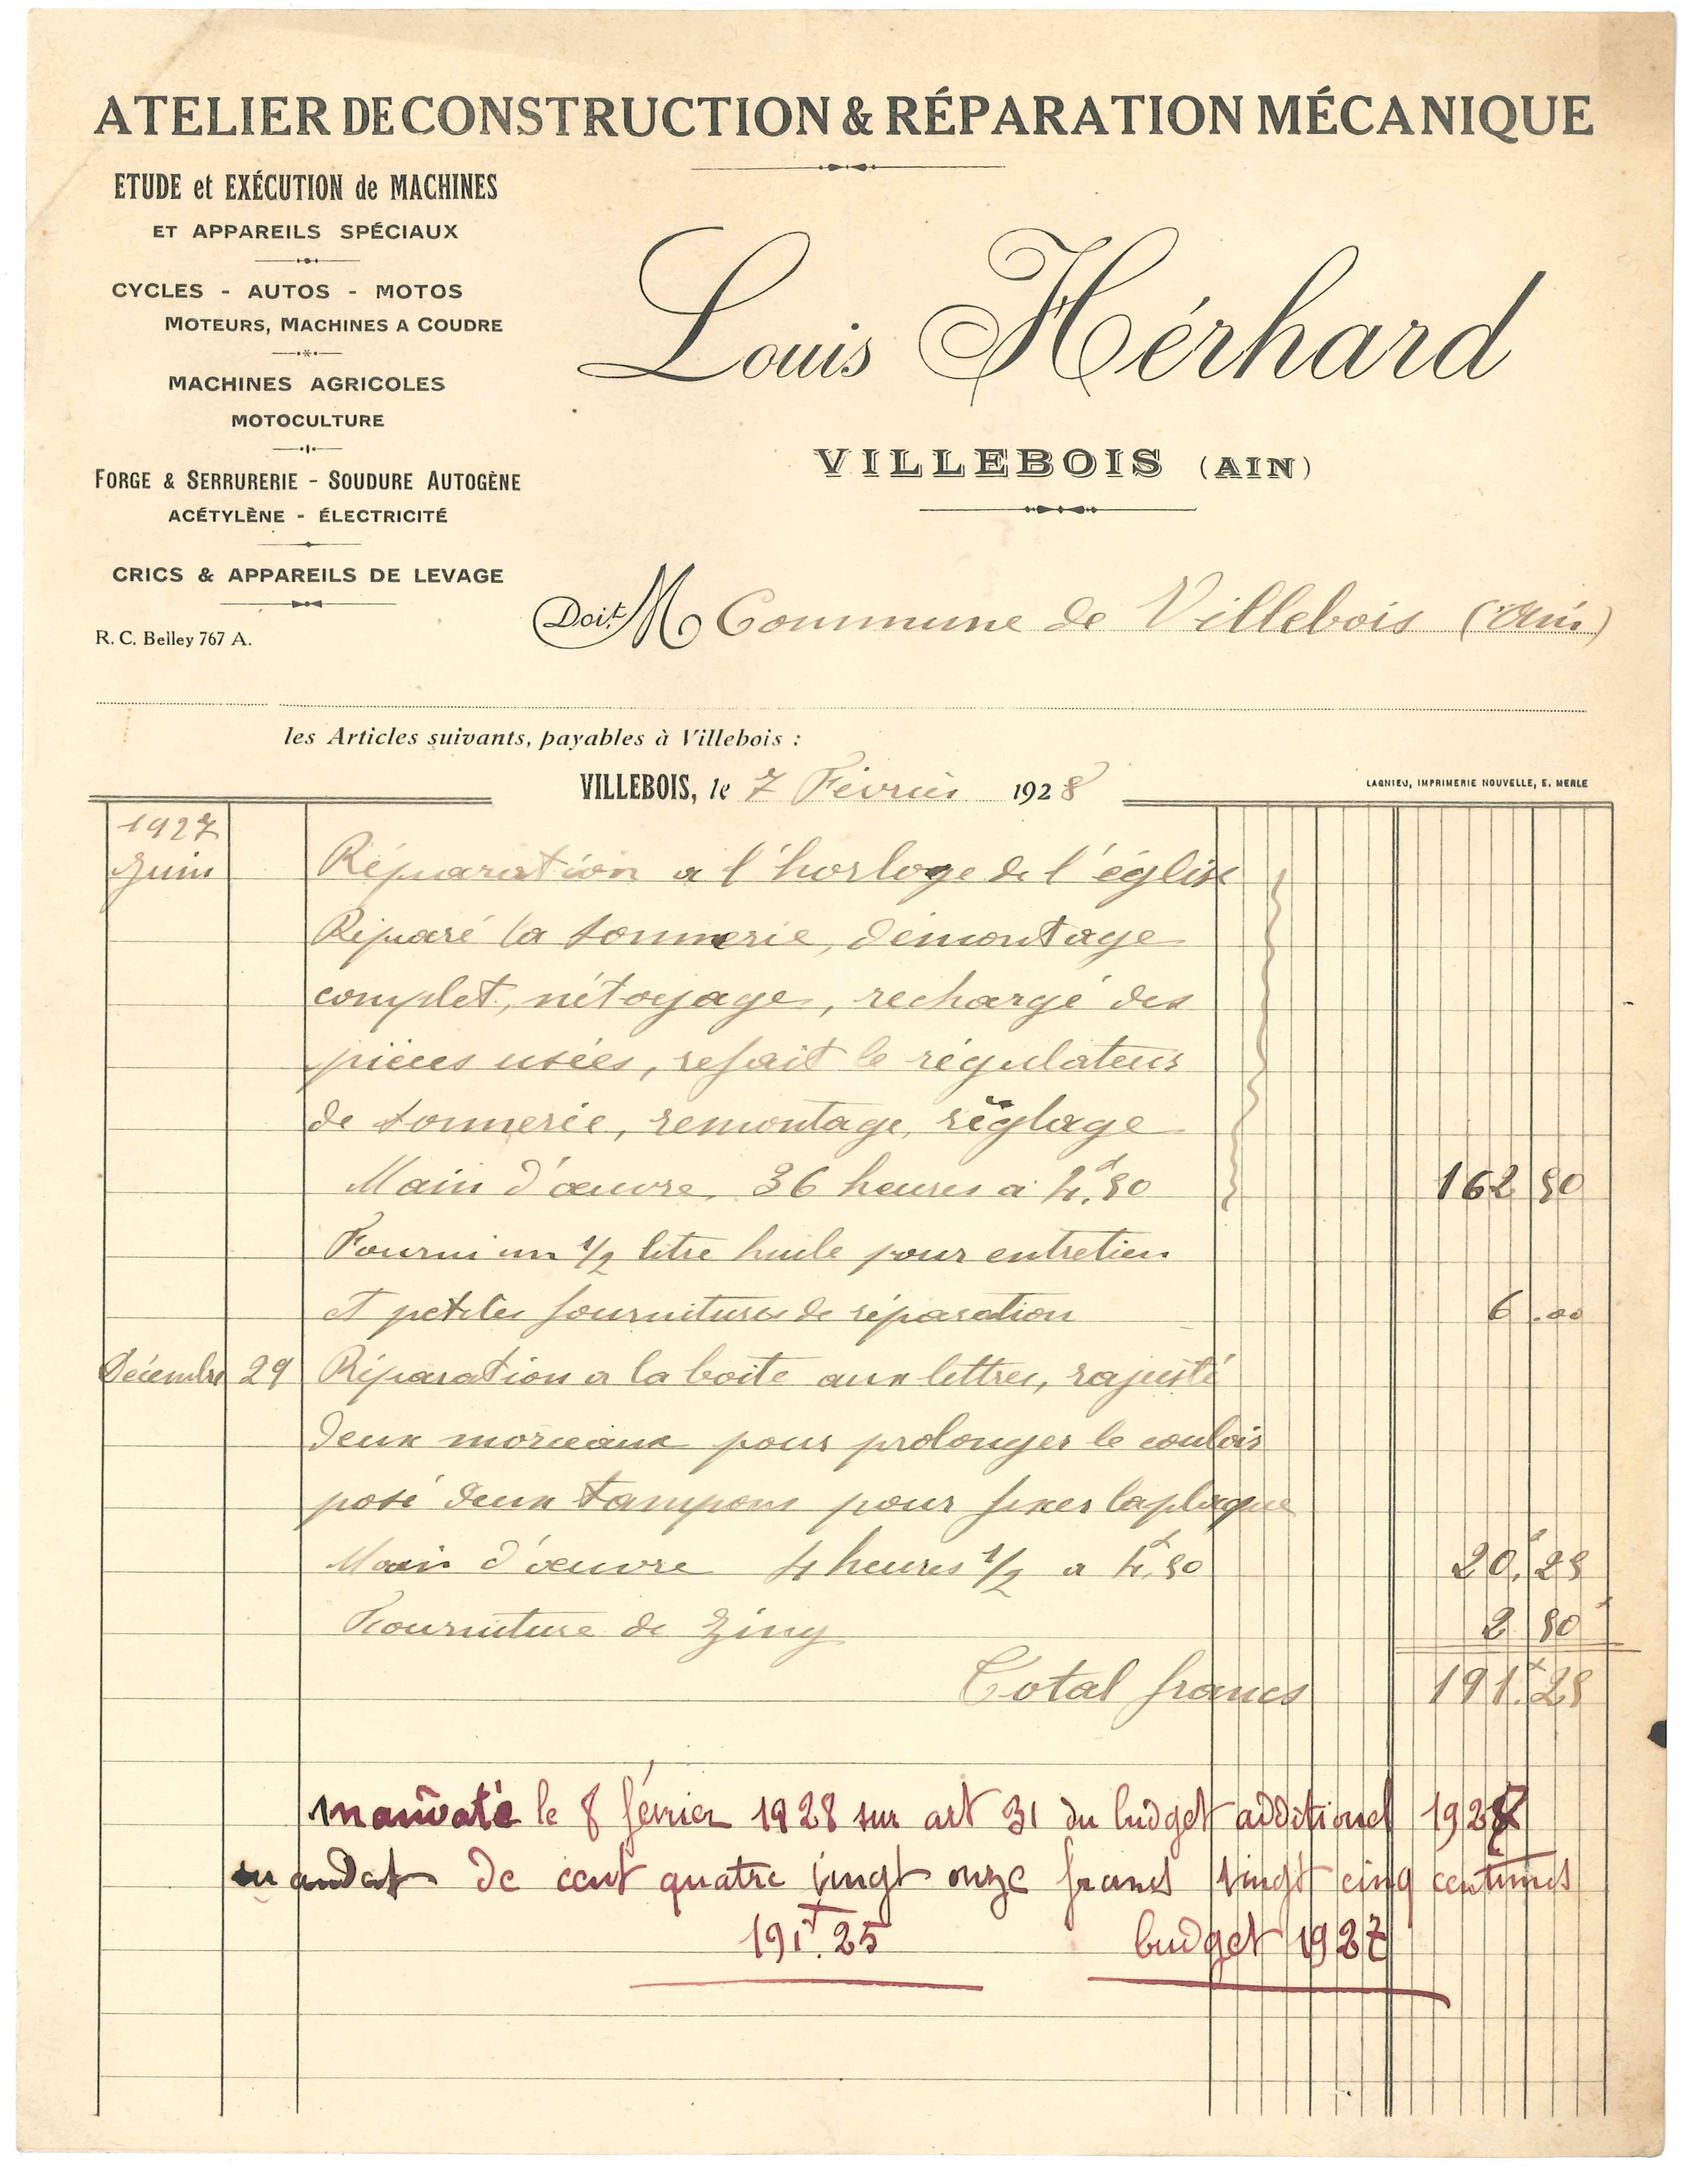 ATELIER DE CONSTRUCTION & RÉPARATION MÉCANIQUE
ETUDE et EXÉCUTION de MACHINES
ET APPAREILS SPÉCIAUX
CYCLES - AUTOS - MOTOS
MOTEURS, MACHINES A COUDRE
MACHINES AGRICOLES
MOTOCULTURE
FORGE & SERRURERIE - SOUDURE AUTOGÈNE
ACÉTYLÈNE - ÉLECTRICITÉ
CRICS & APPAREILS DE LEVAGE
R. C. Belley 767 A.
Louis Hérhard
VILLEBOIS (AIN)
Doit M Commune de Villebois (Ain)
les Articles suivants, payables à Villebois :
VILLEBOIS, le 7 Février 1928
LAGNIEU, IMPRIMERIE NOUVELLE, E. MERLE
1927
Juin Réparation a l'horloge de l'église
Réparé la sonnerie, démontage
complet, nétoyage, rechargé des
pièces usées, refait le régulateur
de sonnerie, remontage, réglage
Main d'œuvre 36 heures a 4f.50 162 50
Fourni un 1/2 litre huile pour entretien
et petites fournitures de réparation 6.00
Décembre 29 Réparation a la boite aux lettres, rajusté
deux morceaux pour prolonger le couloir
posé deux tampons pour fixer la plaque
Main d'œuvre 4 heures 1/2 a 4f.50 20f.25
Fourniture de Zing 2 50
Total francs 191f.25
mandaté le 8 février 1928 sur art 31 du budget additionel 1927
mandat de cent quatre vingt onze francs vingt cinq centimes
191f.25 budget 1927